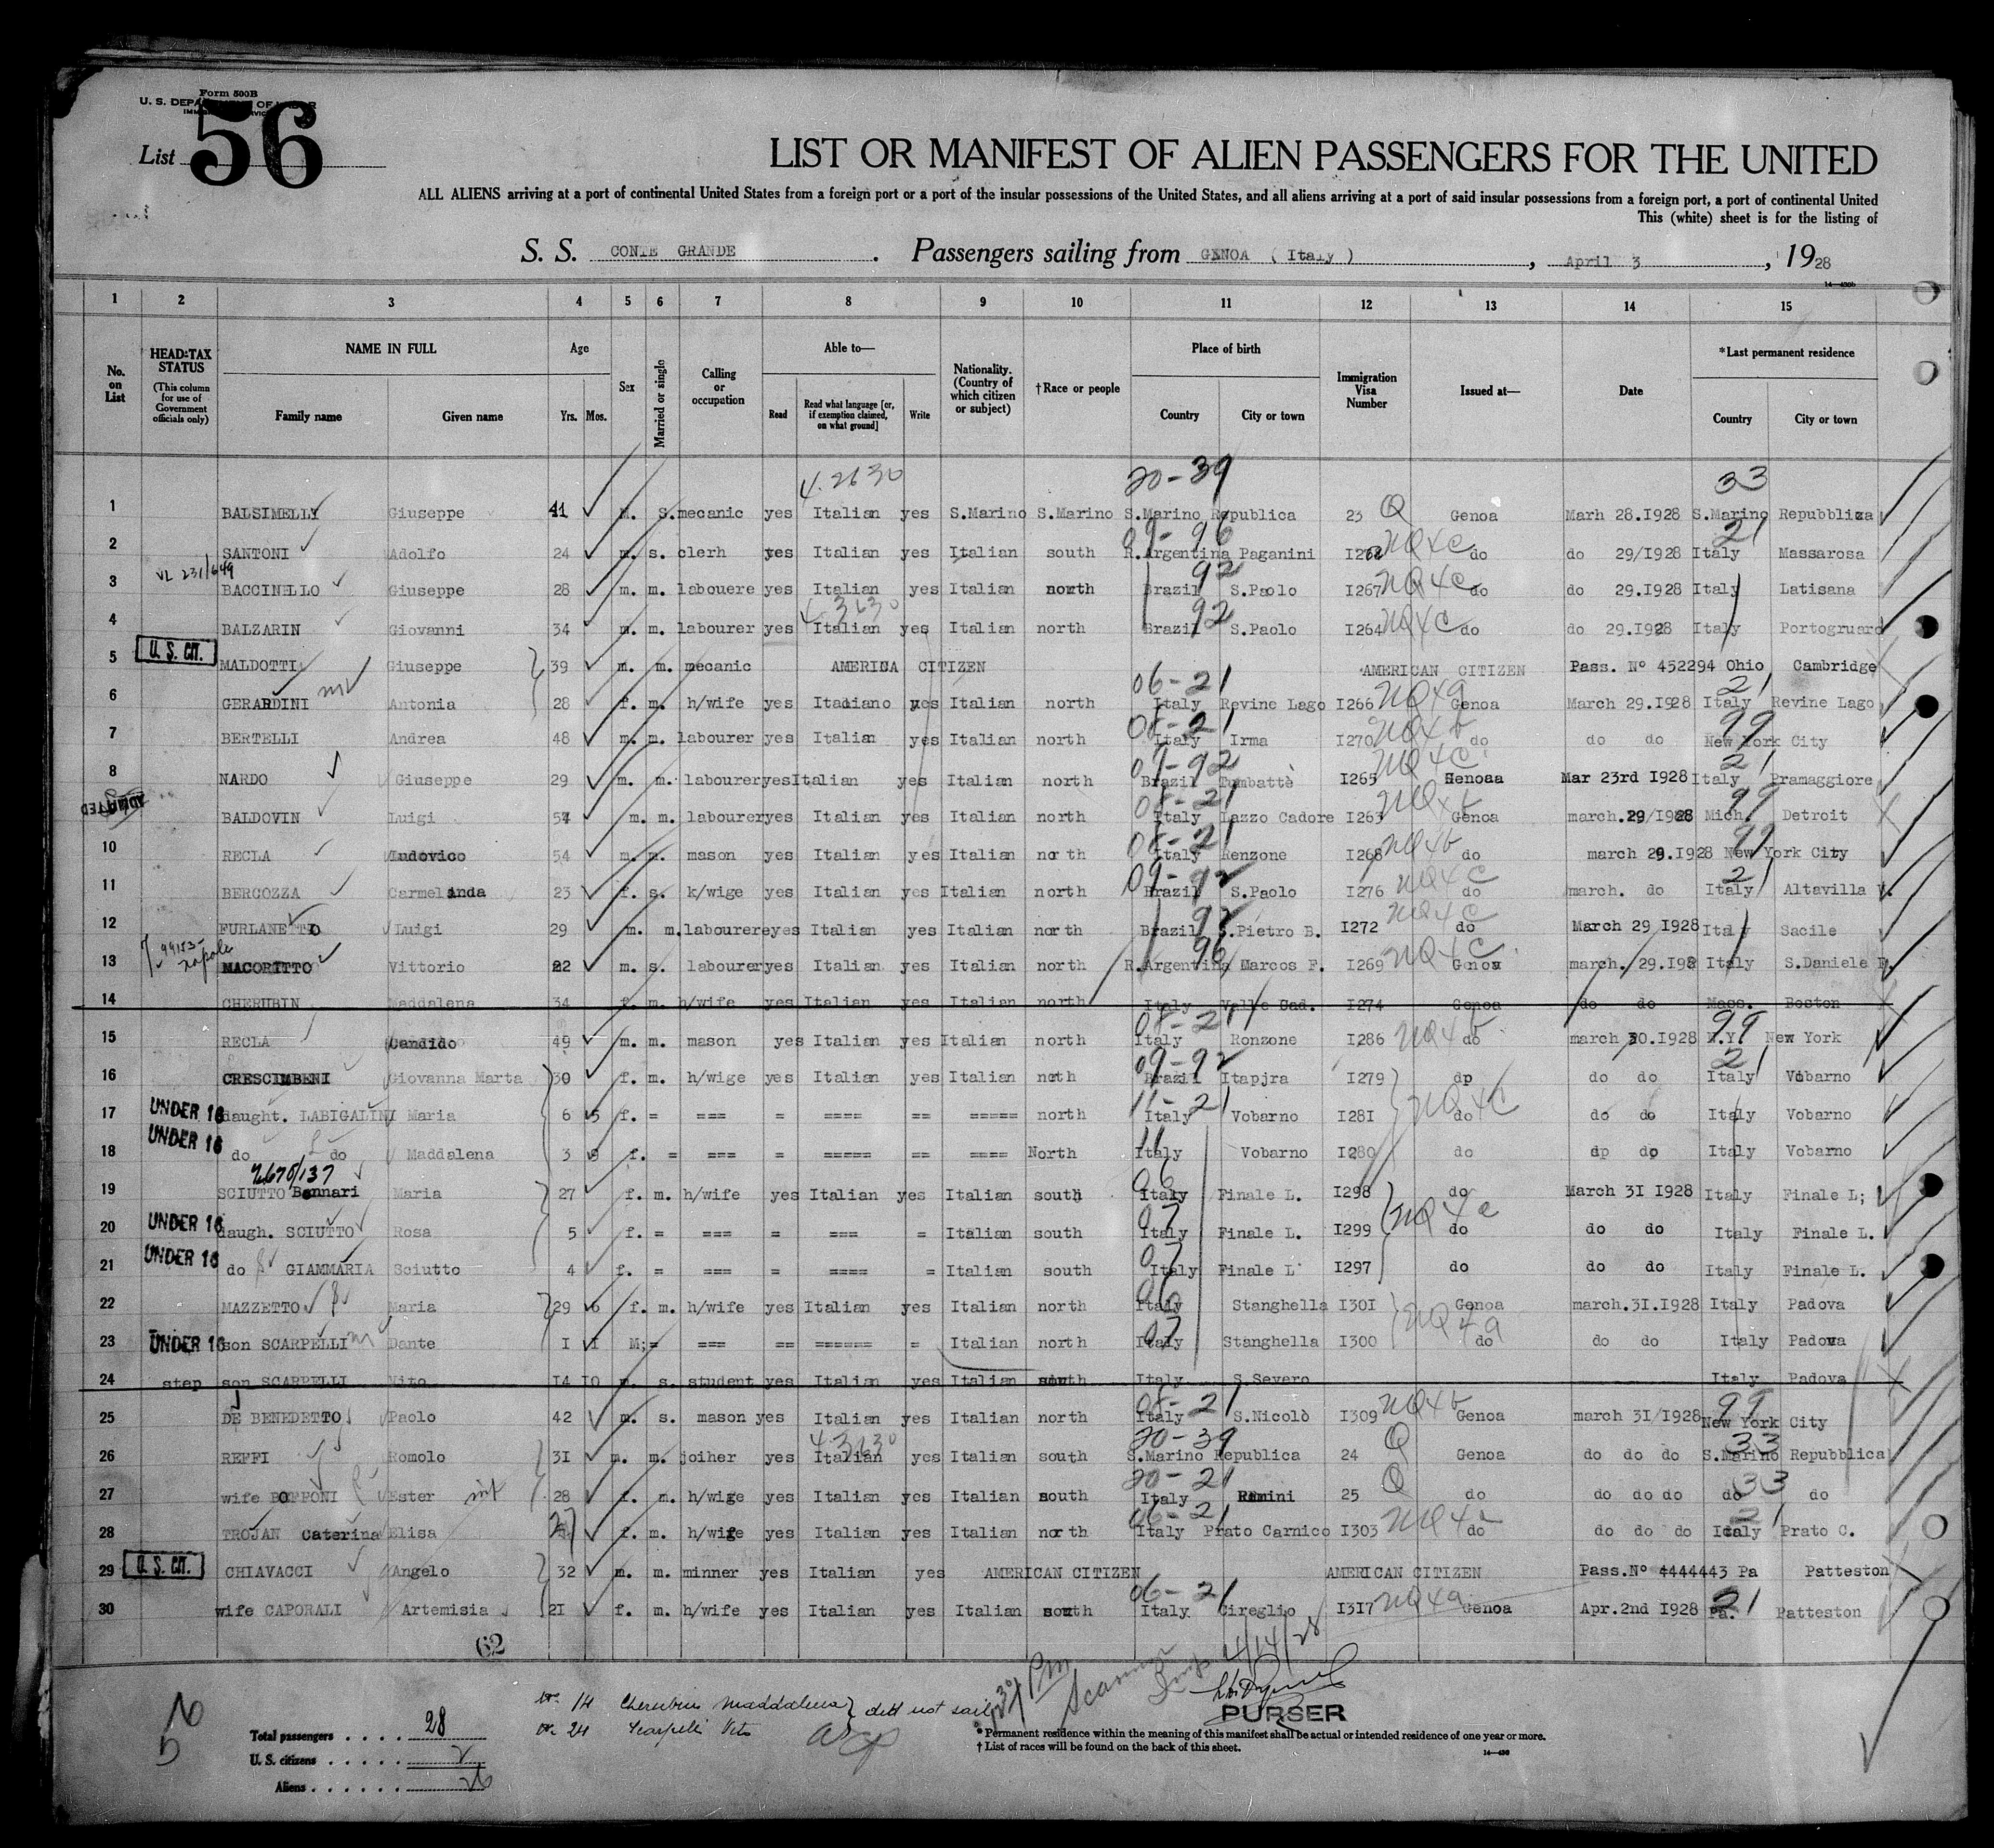 Form 500B
U. S. DEPARTMENT OF LABOR
List 56
LIST OR MANIFEST OF ALIEN PASSENGERS FOR THE UNITED
ALL ALIENS arriving at a port of continental United States from a foreign port or a port of the insular possessions of the United States, and all aliens arriving at a port of said insular possessions from a foreign port, a port of continental United
This (white) sheet is for the listing of
S. S. CONTE GRANDE . Passengers sailing from GENOA ( Italy ) , April 3 , 1928
1 2 3 4 5 6 7 8 9 10 11 12 13 14 15
No. on List
HEAD-TAX STATUS (This column for use of Government officials only)
NAME IN FULL Family name Given name
Age Yrs. Mos.
Sex
Married or single
Calling or occupation
Able to— Read Read what language [or, if exemption claimed, on what ground] Write
Nationality. (Country of which citizen or subject)
†Race or people
Place of birth Country City or town
Immigration Visa Number
Issued at—
Date
*Last permanent residence Country City or town
4.2630 20-39 33
1 BALSIMELLY Giuseppe 41 m. s. mecanic yes Italian yes S.Marino S.Marino S.Marino Republica 23 Q Genoa Marh 28.1928 S.Marino Repubblica
09-96 21
2 SANTONI Adolfo 24 m. s. clerh yes Italian yes Italian south R.Argentina Paganini I262 NQ4c do do 29/1928 Italy Massarosa
92
3 BACCINELLO Giuseppe 28 m. m. labouere yes Italian yes Italian north Brazil S.Paolo I267 NQ4c do do 29.1928 Italy Latisana
4.3630 92
4 BALZARIN Giovanni 34 m. m. labourer yes Italian yes Italian north Brazil S.Paolo I264 NQ4c do do 29.1928 Italy Portogruaro
5 U. S. CIT. MALDOTTI Giuseppe 39 m. m. mecanic AMERICA CITIZEN AMERICAN CITIZEN Pass. Nº 452294 Ohio Cambridge
06-21 21
6 GERARDINI Antonia 28 f. m. h/wife yes Itadiano yes Italian north Italy Revine Lago I266 NQ4a Genoa March 29.1928 Italy Revine Lago
08-21 99
7 BERTELLI Andrea 48 m. m. labourer yes Italian yes Italian north Italy Irma I270 NQ4b do do do New York City
09-92 21
8 NARDO Giuseppe 29 m. m. labourer yes Italian yes Italian north Brazil Tumbattè I265 NQ4c Genoa Mar 23rd 1928 Italy Pramaggiore
08-21 99
ADMITTED BALDOVIN Luigi 54 m. m. labourer yes Italian yes Italian north Italy Lazzo Cadore I263 NQ4b Genoa march.29/1928 Mich. Detroit
08-21 99
10 RECLA Ludovico 54 m. m. mason yes Italian yes Italian north Italy Renzone I268 NQ4b do march 29.1928 New York City
09-92 21
11 BERCOZZA Carmelinda 23 f. s. k/wige yes Italian yes Italian north Brazil S.Paolo I276 NQ4c do march. do Italy Altavilla V.
92
12 FURLANETTO Luigi 29 m. m. labourere yes Italian yes Italian north Brazil S.Pietro B. I272 NQ4c do March 29 1928 Italy Sacile
96
13 MACORITTO Vittorio 22 m. s. labourer yes Italian yes Italian north R.Argentina Marcos F. I269 NQ4c Genoa march. 29.1928 Italy S.Daniele F.
14 CHERUBIN Maddalena 34 f. m. h/wife yes Italian yes Italian north Italy Valle Cad. I274 Genoa do do Mass. Boston
08-21 99
15 RECLA Candido 49 m. m. mason yes Italian yes Italian north Italy Ronzone I286 NQ4b do march 30.1928 N.Y. New York
09-92 21
16 CRESCIMBENI Giovanna Marta 30 f. m. h/wige yes Italian yes Italian north Brazil Itapjra I279 dp do do Italy Vobarno
11-21
17 UNDER 16 daught. LABIGALINI Maria 6 5 f. = === = ==== == ===== north Italy Vobarno I28I NQ4c do do do Italy Vobarno
11
18 UNDER 16 do do Maddalena 3 9 f. = === = ===== == ==== North Italy Vobarno I280 do dp dp Italy Vobarno
2670/137 06
19 SCIUTTO Bennari Maria 27 f. m. h/wife yes Italian yes Italian south Italy Finale L. I298 do March 3I 1928 Italy Finale L;
07
20 UNDER 16 daugh. SCIUTTO Rosa 5 f. = === = === = Italian south Italy Finale L. I299 NQ4a do do do Italy Finale L.
07
21 UNDER 16 do GIAMMARIA Sciutto 4 f. = === = ==== = Italian south Italy Finale L I297 do do do Italy Finale L.
06
22 MAZZETTO Maria 29 6 f. m. h/wife yes Italian yes Italian north Italy Stanghella I30I Genoa march.3I.1928 Italy Padova
07
23 UNDER 16 son SCARPELLI Dante I I M; = === == ====== = Italian north Italy Stanghella I300 NQ4a do do do Italy Padova
24 step son SCARPELLI Vito I4 IO m. s. student yes Italian yes Italian south Italy S.Severo Italy Padova
08-21 99
25 DE BENEDETTO Paolo 42 m. s. mason yes Italian yes Italian north Italy S.Nicolò I309 NQ4b Genoa march 31/1928 New York City
4.3630 20-39 33
26 REFFI Romolo 3I m. m. joiher yes Italian yes Italian south S.Marino Republica 24 Q Genoa do do do S.Marino Repubblica
20-21 33
27 wife BOFFONI Ester 28 f. m. h/wige yes Italian yes Italian south Italy Rimini 25 Q do do do do do do
06-21 21
28 TROJAN Caterina Elisa 27 f. m. h/wife yes Italian yes Italian north Italy Prato Carnico I303 NQ4a do do do do Italy Prato C.
29 U. S. CIT. CHIAVACCI Angelo 32 m. m. minner yes Italian yes AMERICAN CITIZEN AMERICAN CITIZEN Pass.Nº 4444443 Pa Patteston
06-21 21
30 wife CAPORALI Artemisia 2I f. m. h/wife yes Italian yes Italian south Italy Cireglio I3I7 NQ4a Genoa Apr.2nd 1928 Pa. Patteston
62
4/14/28
No. 14 Cherubin Maddalena } did not sail
No. 24 Scarpelli Vito
PURSER
Total passengers . . . . 28
U. S. citizens . . . . 2
Aliens . . . . . . 26
* Permanent residence within the meaning of this manifest shall be actual or intended residence of one year or more.
† List of races will be found on the back of this sheet.